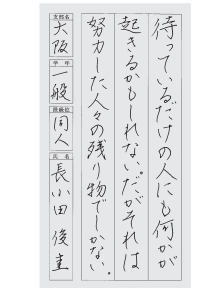 待っているだけの人にも何かが
起きるかもしれない。だがそれは
努力した人々の残り物でしかない。
支部名
大阪
学年
一般
段級位
同人
氏名
長小田 俊圭